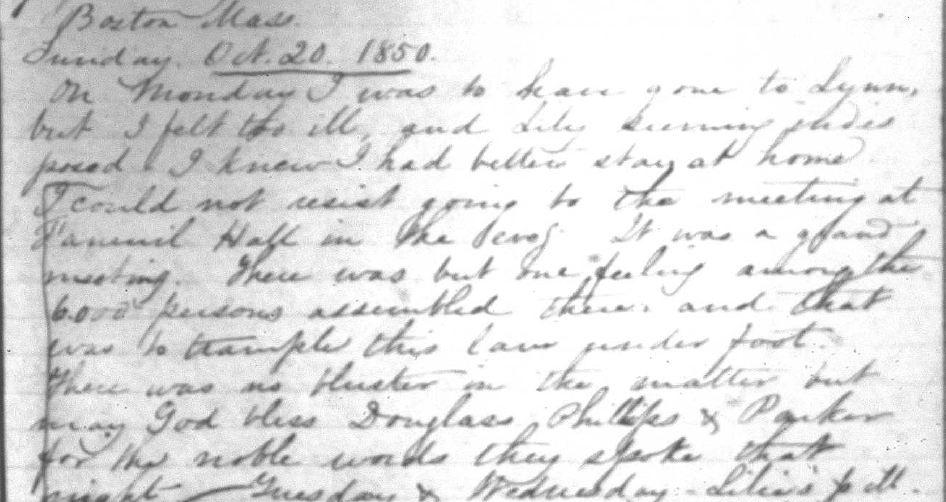 Boston Mass.
Sunday. Oct. 20. 1850.
On Monday I was to have gone to Lynn,
but I felt too ill, and Lily seeming indis
posed I knew I had better stay at home
I could not resist going to the meeting at
Faneuil Hall in the eveg. It was a grand
meeting. There was but one feeling among the
6000 persons assembled there. and that
was to trample this law under foot.
There was no bluster in the matter but
may God bless Douglass, Phillips & Parker
for the noble words they spoke that
night — Tuesday & Wednesday - Lilie